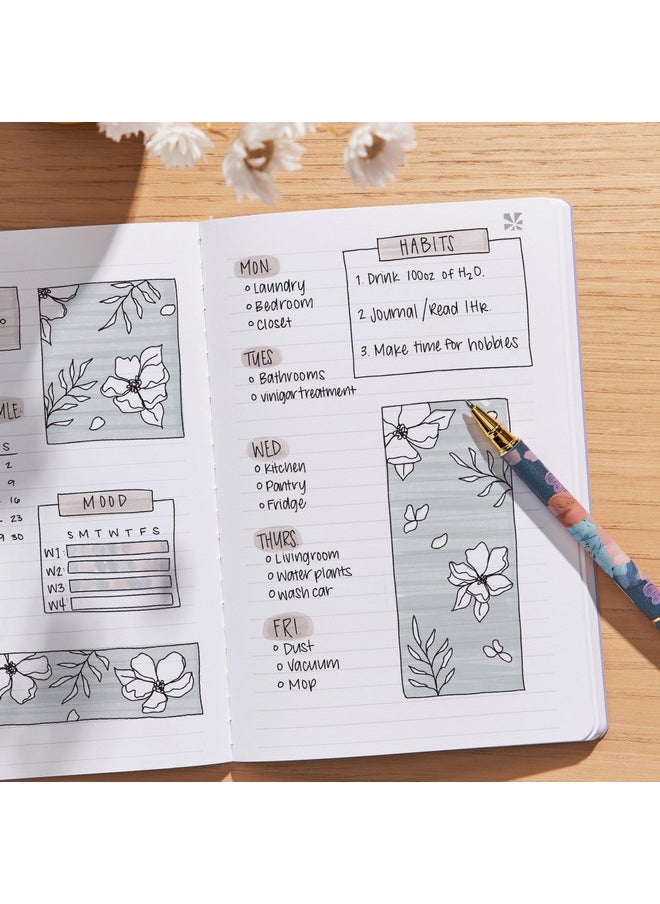 MLE
S
2
9
16
23
9 30
MOOD
S M T W T F S
W1:
W2:
W3
W4
MON.
Laundry
Bedroom
Closet
TUES
Bathrooms
vinigar treatment
WED
Kitchen
Pantry
Fridge
THURS
Livingroom
Water plants
wash car
FRI.
Dust
Vacuum
Mop
HABITS
1. Drink 100oz of H₂O.
2. Journal/Read 1HR.
3. Make time for hobbies